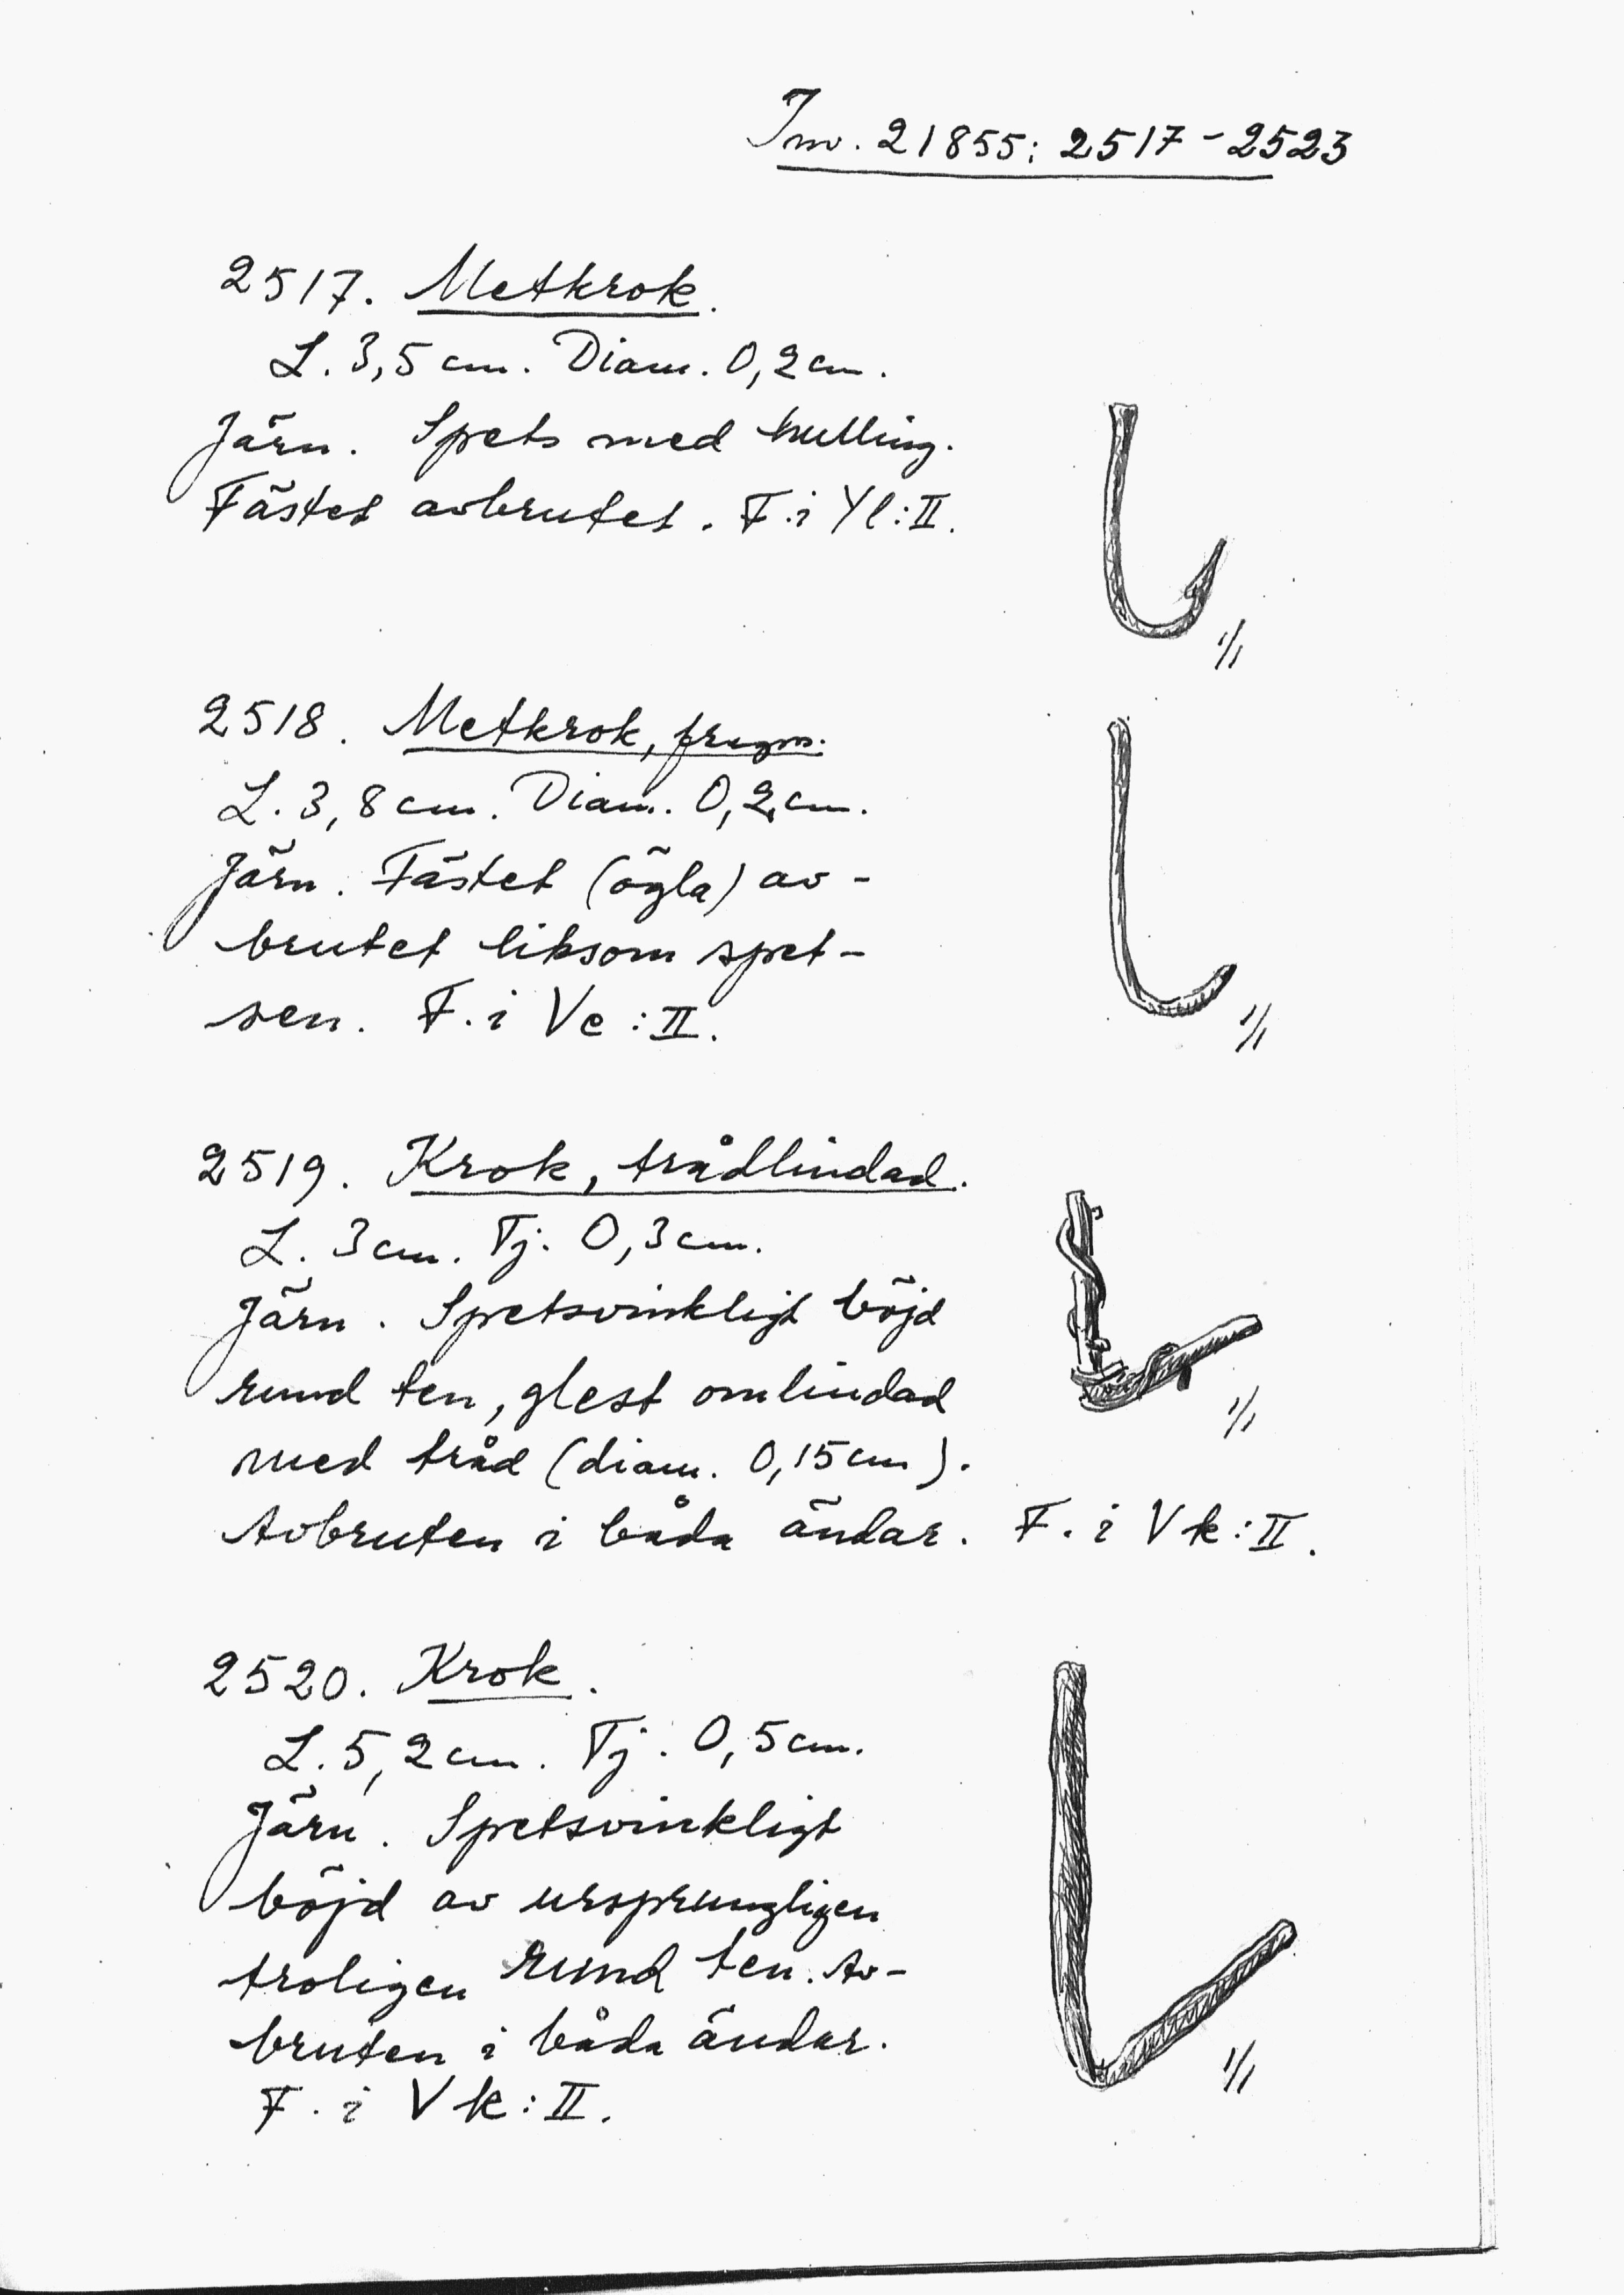 Inv. 21855: 2517-2523
2517. Metkrok.
L. 3,5 cm. Diam. 0,2 cm.
Järn. Spets med hulling.
Fästet avbrutet. F. i Yl:II.
1/1
2518. Metkrok, fragm.
L. 3,8 cm. Diam. 0,2 cm.
Järn. Fästet (ögla) av-
brutet liksom spet-
sen. F. i Ve:II.
1/1
2519. Krok, trådlindad.
L. 3 cm. Tj. 0,3 cm.
Järn. Spetsvinkligt böjd
rund ten, glest omlindad
med tråd (diam. 0,15 cm).
Avbruten i båda ändar. F. i Vk:II.
1/1
2520. Krok.
L. 5,2 cm. Tj. 0,5 cm.
Järn. Spetsvinkligt
böjd av ursprungligen
troligen rund ten. Av-
bruten i båda ändar.
F. i Vk:II.
1/1